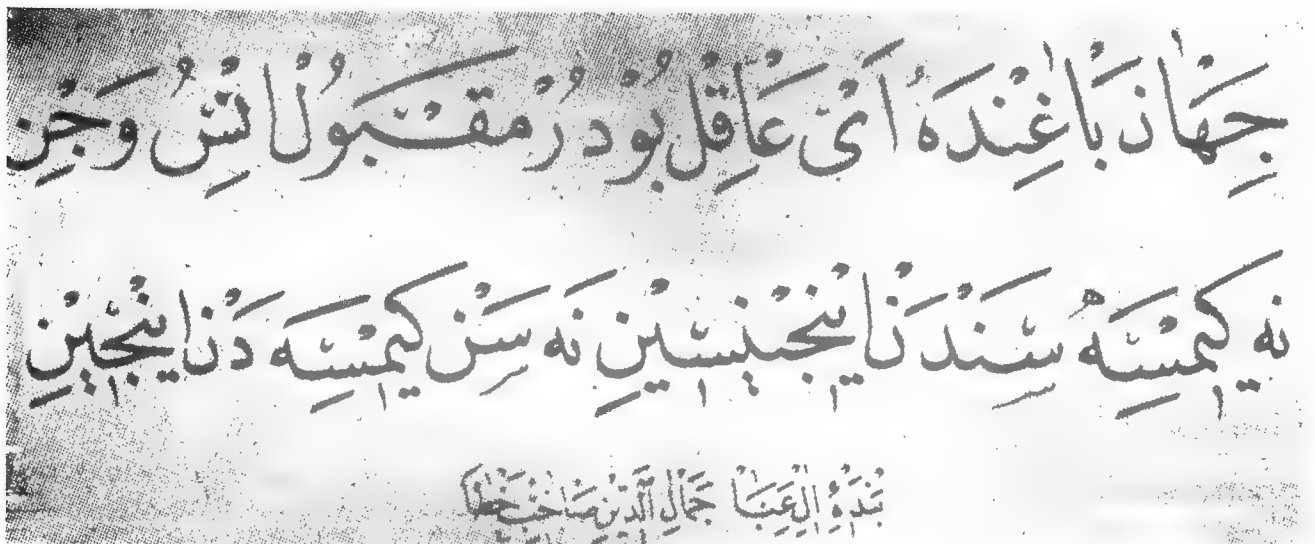 جهان باغنده ای عاقل بودر مقبول انس و جن
نه كیمسه سندن اینجینسین نه سن كیمسه دن اینجین
بندهٔ ال عبا جمال الدین